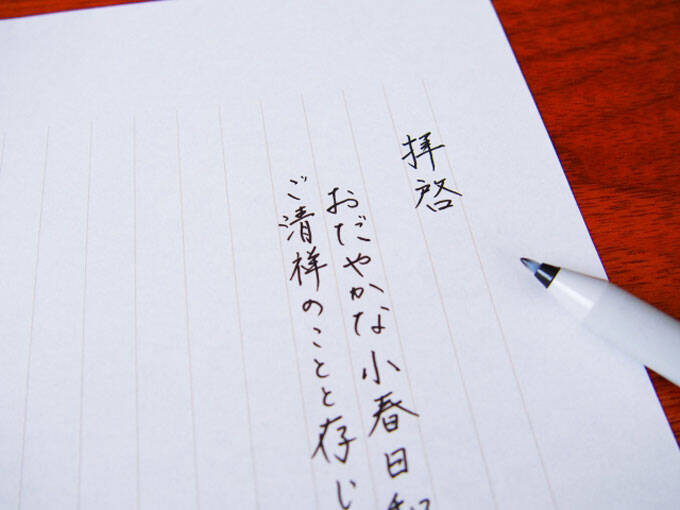 拝啓
おだやかな小春日和
ご清祥のことと存じ